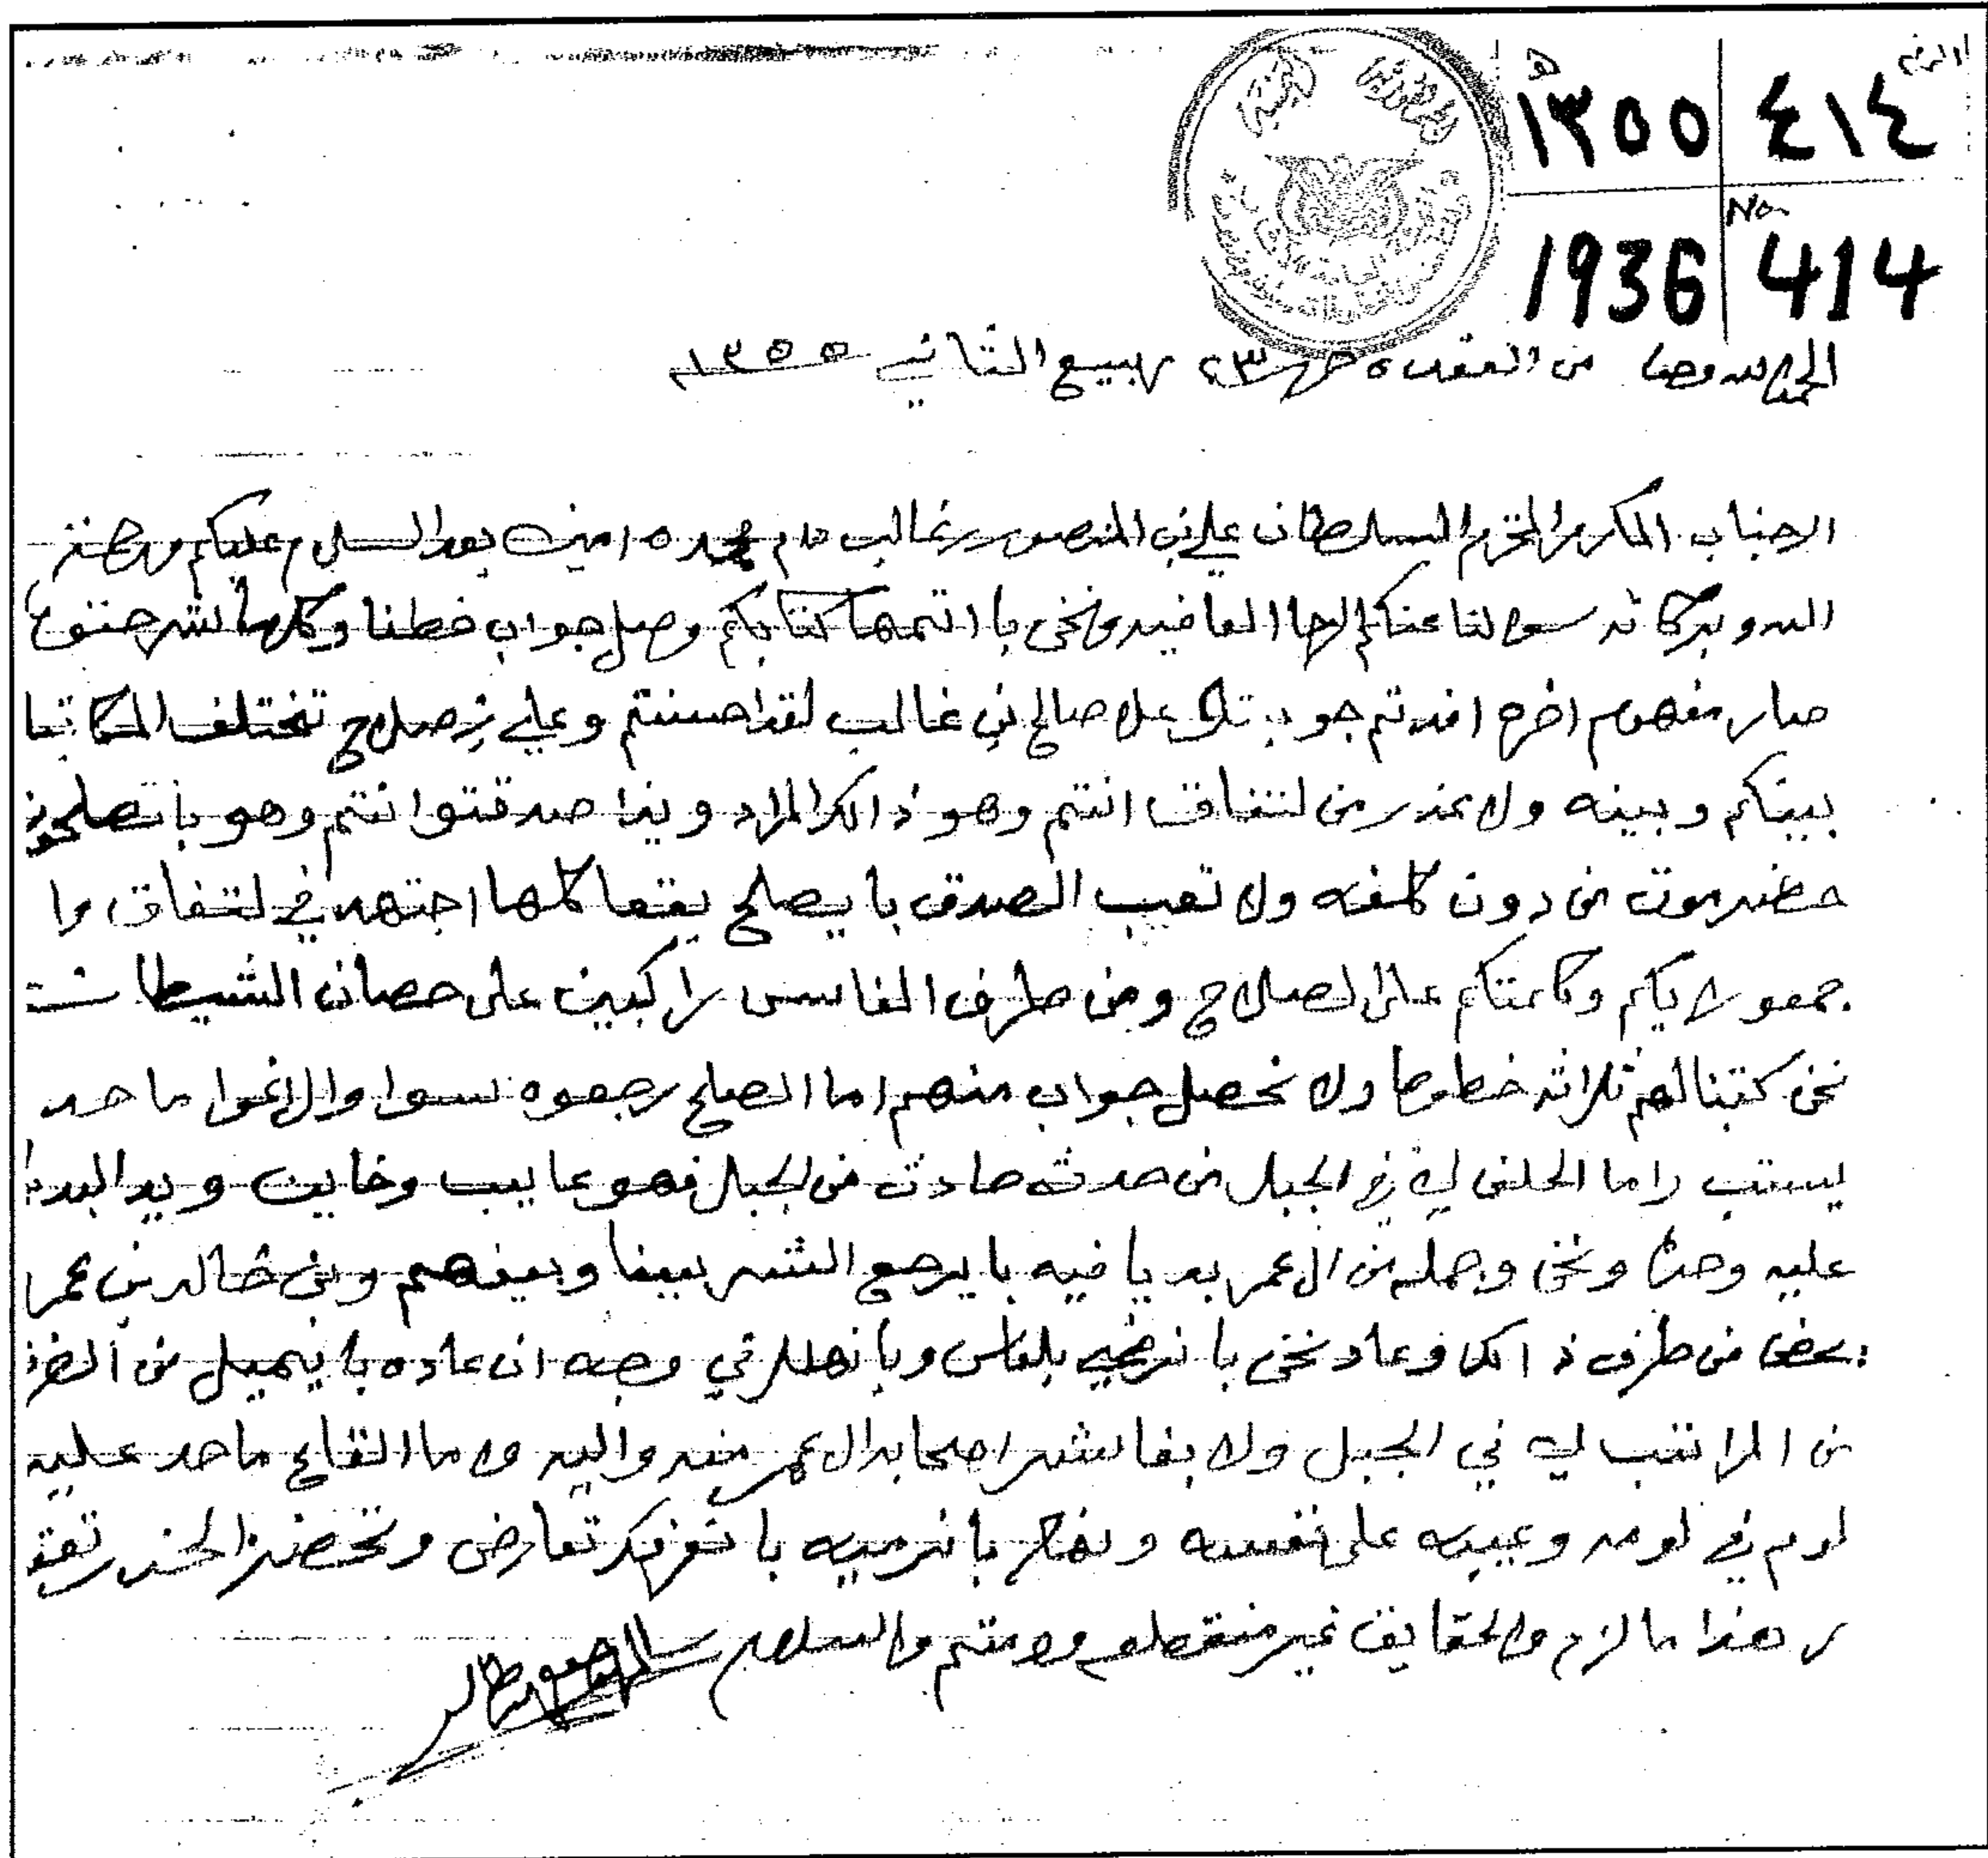 الرقم
٤١٤ ١٣٥٥ هـ
No
414 1936
الحمد لله وحده من العقده حرر ٢٣ ربيع الثاني ١٣٥٥
الجناب المكرم المحترم السلطان علي بن المنصور بن غالب دام مجده امين بعد السلام عليكم ورحمة
الله وبركاته سوالنا عنكم ارجا العافيه ونحن باتمها كتابكم وصل جواب خطنا وكلما شرحتوه
صار مفهوم افدتم جوبتو على صالح بن غالب لقد احسنتم وعلي بن صلاح تختلف المكاتبا
بينكم وبينه ولا عذر من لتفاق انتم وهو ذالك المراد وإذا صدقتوا انتم وهو باتصلحون
حضرموت من دون كلفه ولا تعب الصدق بايصلح بقعا كلها اجتهد في لتفاق وا
جمعو رايكم وكلمتكم على لصلاح ومن طرف الفاسس راكبين على حصان الشيطان
نحن كتبنا لهم ثلاثه خطوط ولا نحصل جواب منهم اما الصلح رجعوه سوا والا غوا ماحد
يستب واما الحلف لي في الجبل من حدث حادث من لجبل فهو عايب وخاين ويد البدا
عليه وحده ونحن وجمله من ال عمر بديا فيه بايرجع الشر بيننا وبينهم وبن خالد بن عمر
من طرف ذالك وعاد نحن بانرضيه بلقاس وبانهلل في وجهه ان عاده بايميل من
من المراتب لي في الجبل ولا بقا شر اصحابه ال عمر منه واليه ولا ما القاع ماحد عليه
لوم في لومه وعيبه على نفسه بانرميه بانعرفكم تعارض وتحضر الحذر
هذا مالزم والحقايق غير منقطعه ودمتم والسلام